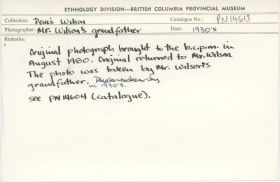 ETHNOLOGY DIVISION—BRITISH COLUMBIA PROVINCIAL MUSEUM
Collection: Denis Wilson Catalogue No.: PN14613
Photographer: Mr. Wilson's grandfather Date: 1930's
Remarks:
Original photograph brought to the b.c.p.m. in
August 1980. Original returned to Mr. Wilson
The photo was taken by Mr. Wilson's
grandfather.
in 1930's.
SEE PN14604 (catalogue).